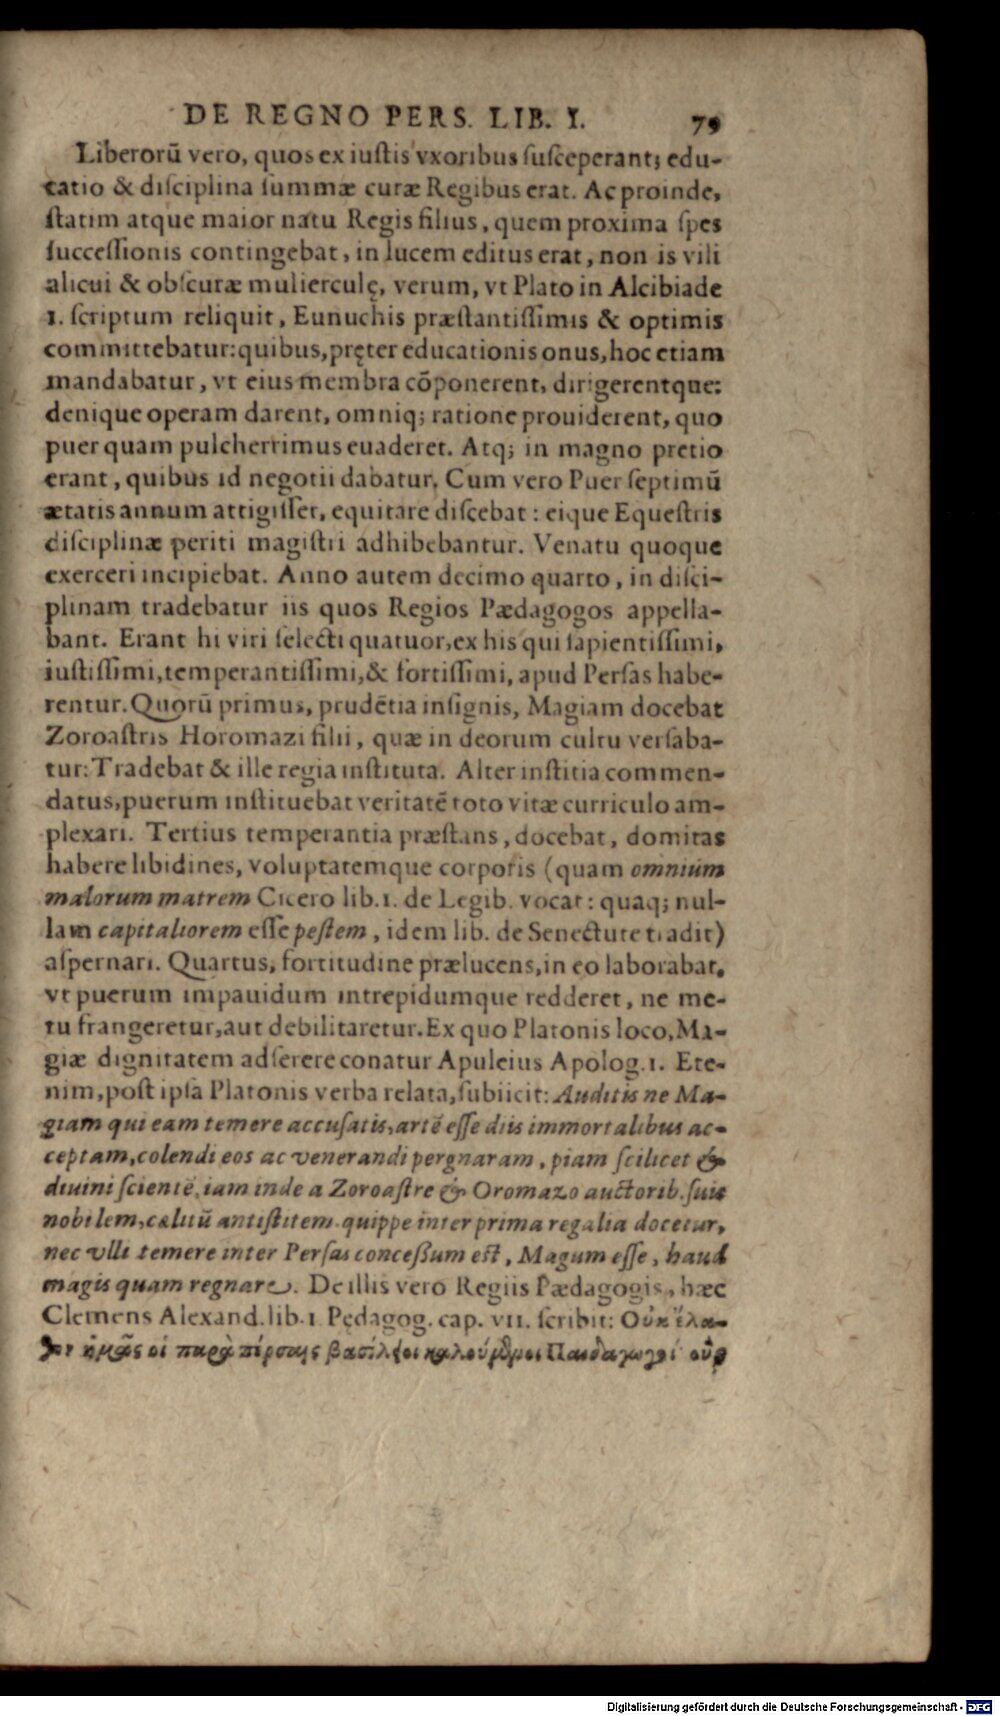 DE REGNO PERS. LIB. I. 79
Liberorū vero, quos ex iuſtis vxoribus ſuſceperant; edu-
catio & diſciplina ſummæ curæ Regibus erat. Ac proinde,
ſtatim atque maior natu Regis filius, quem proxima ſpes
ſucceſſionis contingebat, in lucem editus erat, non is vili
alicui & obſcuræ mulierculę, verum, vt Plato in Alcibiade
1. ſcriptum reliquit, Eunuchis præſtantiſſimis & optimis
committebatur: quibus, pręter educationis onus, hoc etiam
mandabatur, vt eius membra cōponerent, dirigerentque:
denique operam darent, omniq; ratione prouiderent, quo
puer quam pulcherrimus euaderet. Atq; in magno pretio
erant, quibus id negotii dabatur. Cum vero Puer ſeptimū
ætatis annum attigiſſet, equitare diſcebat: eique Equeſtris
diſciplinæ periti magiſtri adhibebantur. Venatu quoque
exerceri incipiebat. Anno autem decimo quarto, in diſci-
plinam tradebatur iis quos Regios Pædagogos appella-
bant. Erant hi viri ſelecti quatuor, ex his qui ſapientiſſimi,
iuſtiſſimi, temperantiſſimi, & fortiſſimi, apud Perſas habe-
rentur. Quorū primus, prudētia inſignis, Magiam docebat
Zoroaſtris Horomazi filii, quæ in deorum cultu verſaba-
tur: Tradebat & ille regia inſtituta. Alter inſtitia commen-
datus, puerum inſtituebat veritatē toto vitæ curriculo am-
plexari. Tertius temperantia præſtans, docebat, domitas
habere libidines, voluptatemque corporis (quam omnium
malorum matrem Cicero lib. 1. de Legib. vocat: quaq; nul-
lam capitaliorem eſſe peſtem, idem lib. de Senectute tradit)
aſpernari. Quartus, fortitudine prælucens, in eo laborabat,
vt puerum impauidum intrepidumque redderet, ne me-
tu frangeretur, aut debilitaretur. Ex quo Platonis loco, Ma-
giæ dignitatem adſerere conatur Apuleius Apolog. 1. Ete-
nim, poſt ipſa Platonis verba relata, ſubiicit: Auditis ne Ma-
giam qui eam temere accuſatis, artē eſſe diis immortalibus ac-
ceptam, colendi eos ac venerandi pergnaram, piam ſcilicet &
diuini ſcientē, iam inde a Zoroaſtre & Oromazo auctorib. ſuis
nobilem, cælitū antiſtitem. quippe inter prima regalia docetur,
nec vlli temere inter Perſas conceſſum eſt, Magum eſſe, haud
magis quam regnare. De illis vero Regiis Pædagogis, hæc
Clemens Alexand. lib. 1 Pędagog. cap. VII. ſcribit: Οὐκ ἔλα-
θον ἡμᾶς οἱ παρὰ πέρσαις βασίλειοι καλούμενοι Παιδαγωγοί οὓς
Digitalisierung gefördert durch die Deutsche Forschungsgemeinschaft - DFG